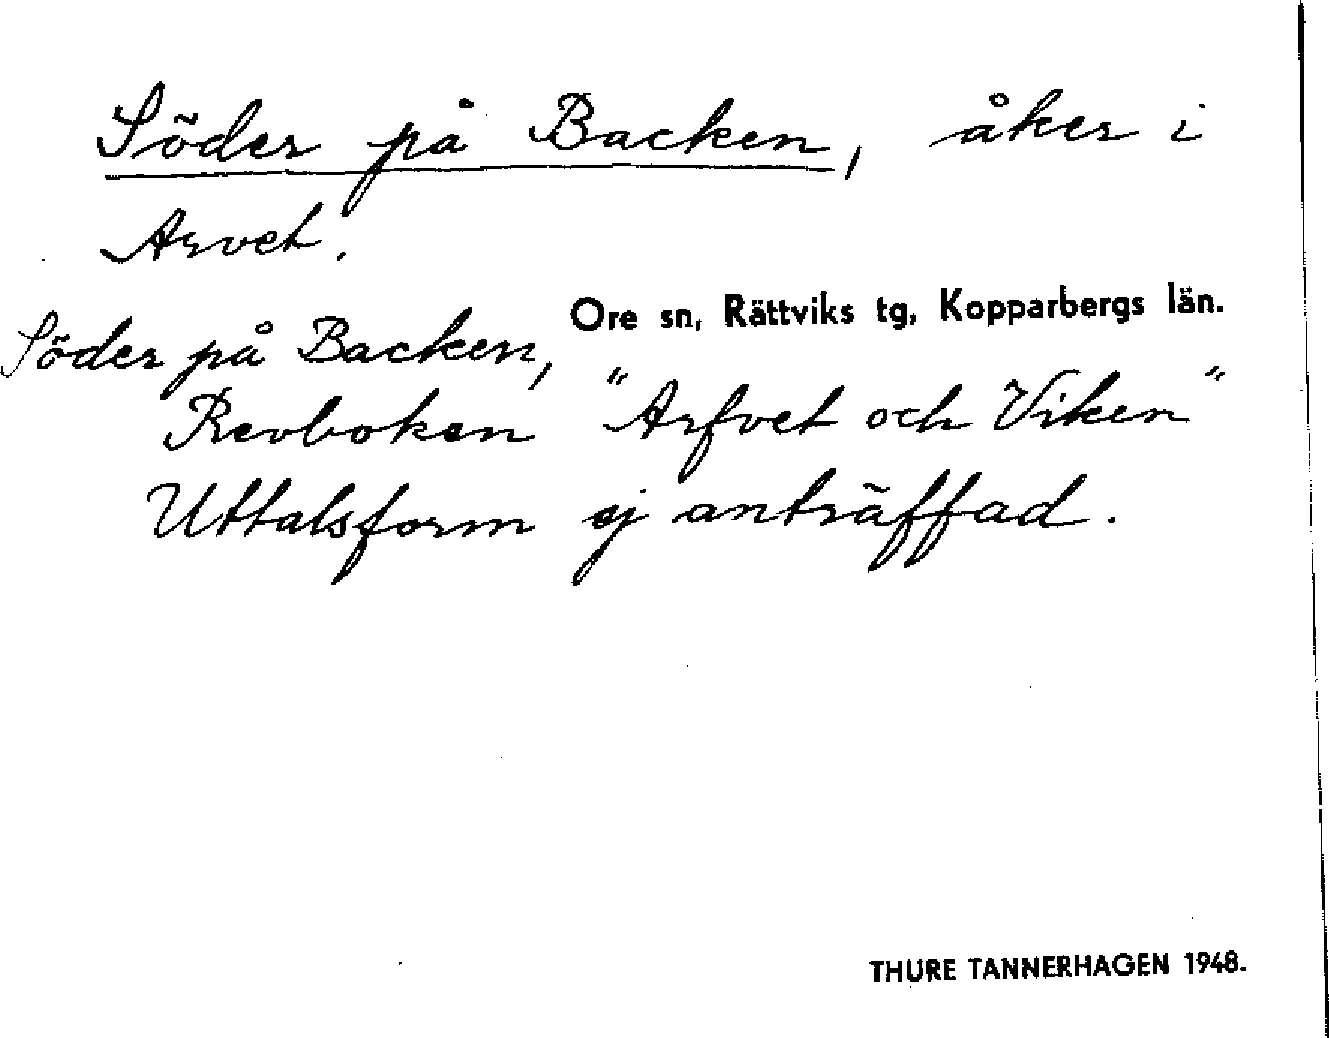 Söder på Backen, åker i
Arvet.
Ore sn, Rättviks tg, Kopparbergs län.
Söder på Backen,
Revboken "Arfvet och Viken"
Uttalsform ej anträffad.
THURE TANNERHAGEN 1948.